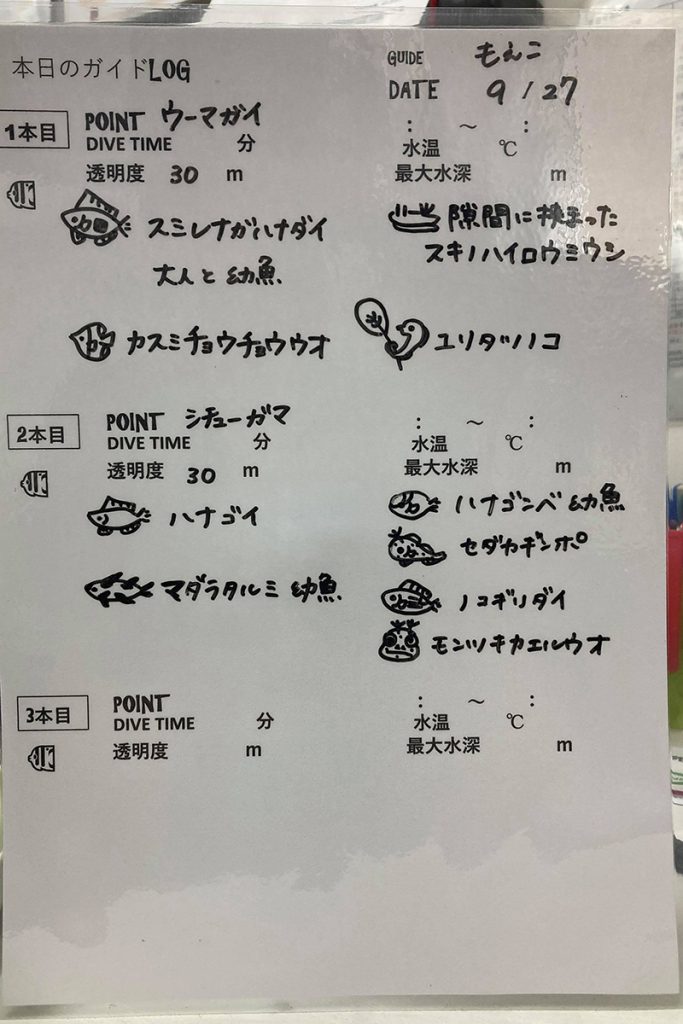 本日のガイドLOG
GUIDE もえこ
DATE 9/27
1本目
POINT ウーマガイ
DIVE TIME 分
透明度 30 m
: ～ :
水温 ℃
最大水深 m
スミレナガハナダイ
大人と幼魚
隙間に挟まった
スキノハイロウミウシ
カスミチョウチョウウオ
ユリタツノコ
2本目
POINT シチューガマ
DIVE TIME 分
透明度 30 m
: ～ :
水温 ℃
最大水深 m
ハナゴイ
マダラタルミ 幼魚
ハナゴンベ 幼魚
セダカギンポ
ノコギリダイ
モンツキカエルウオ
3本目
POINT
DIVE TIME 分
透明度 m
: ～ :
水温 ℃
最大水深 m